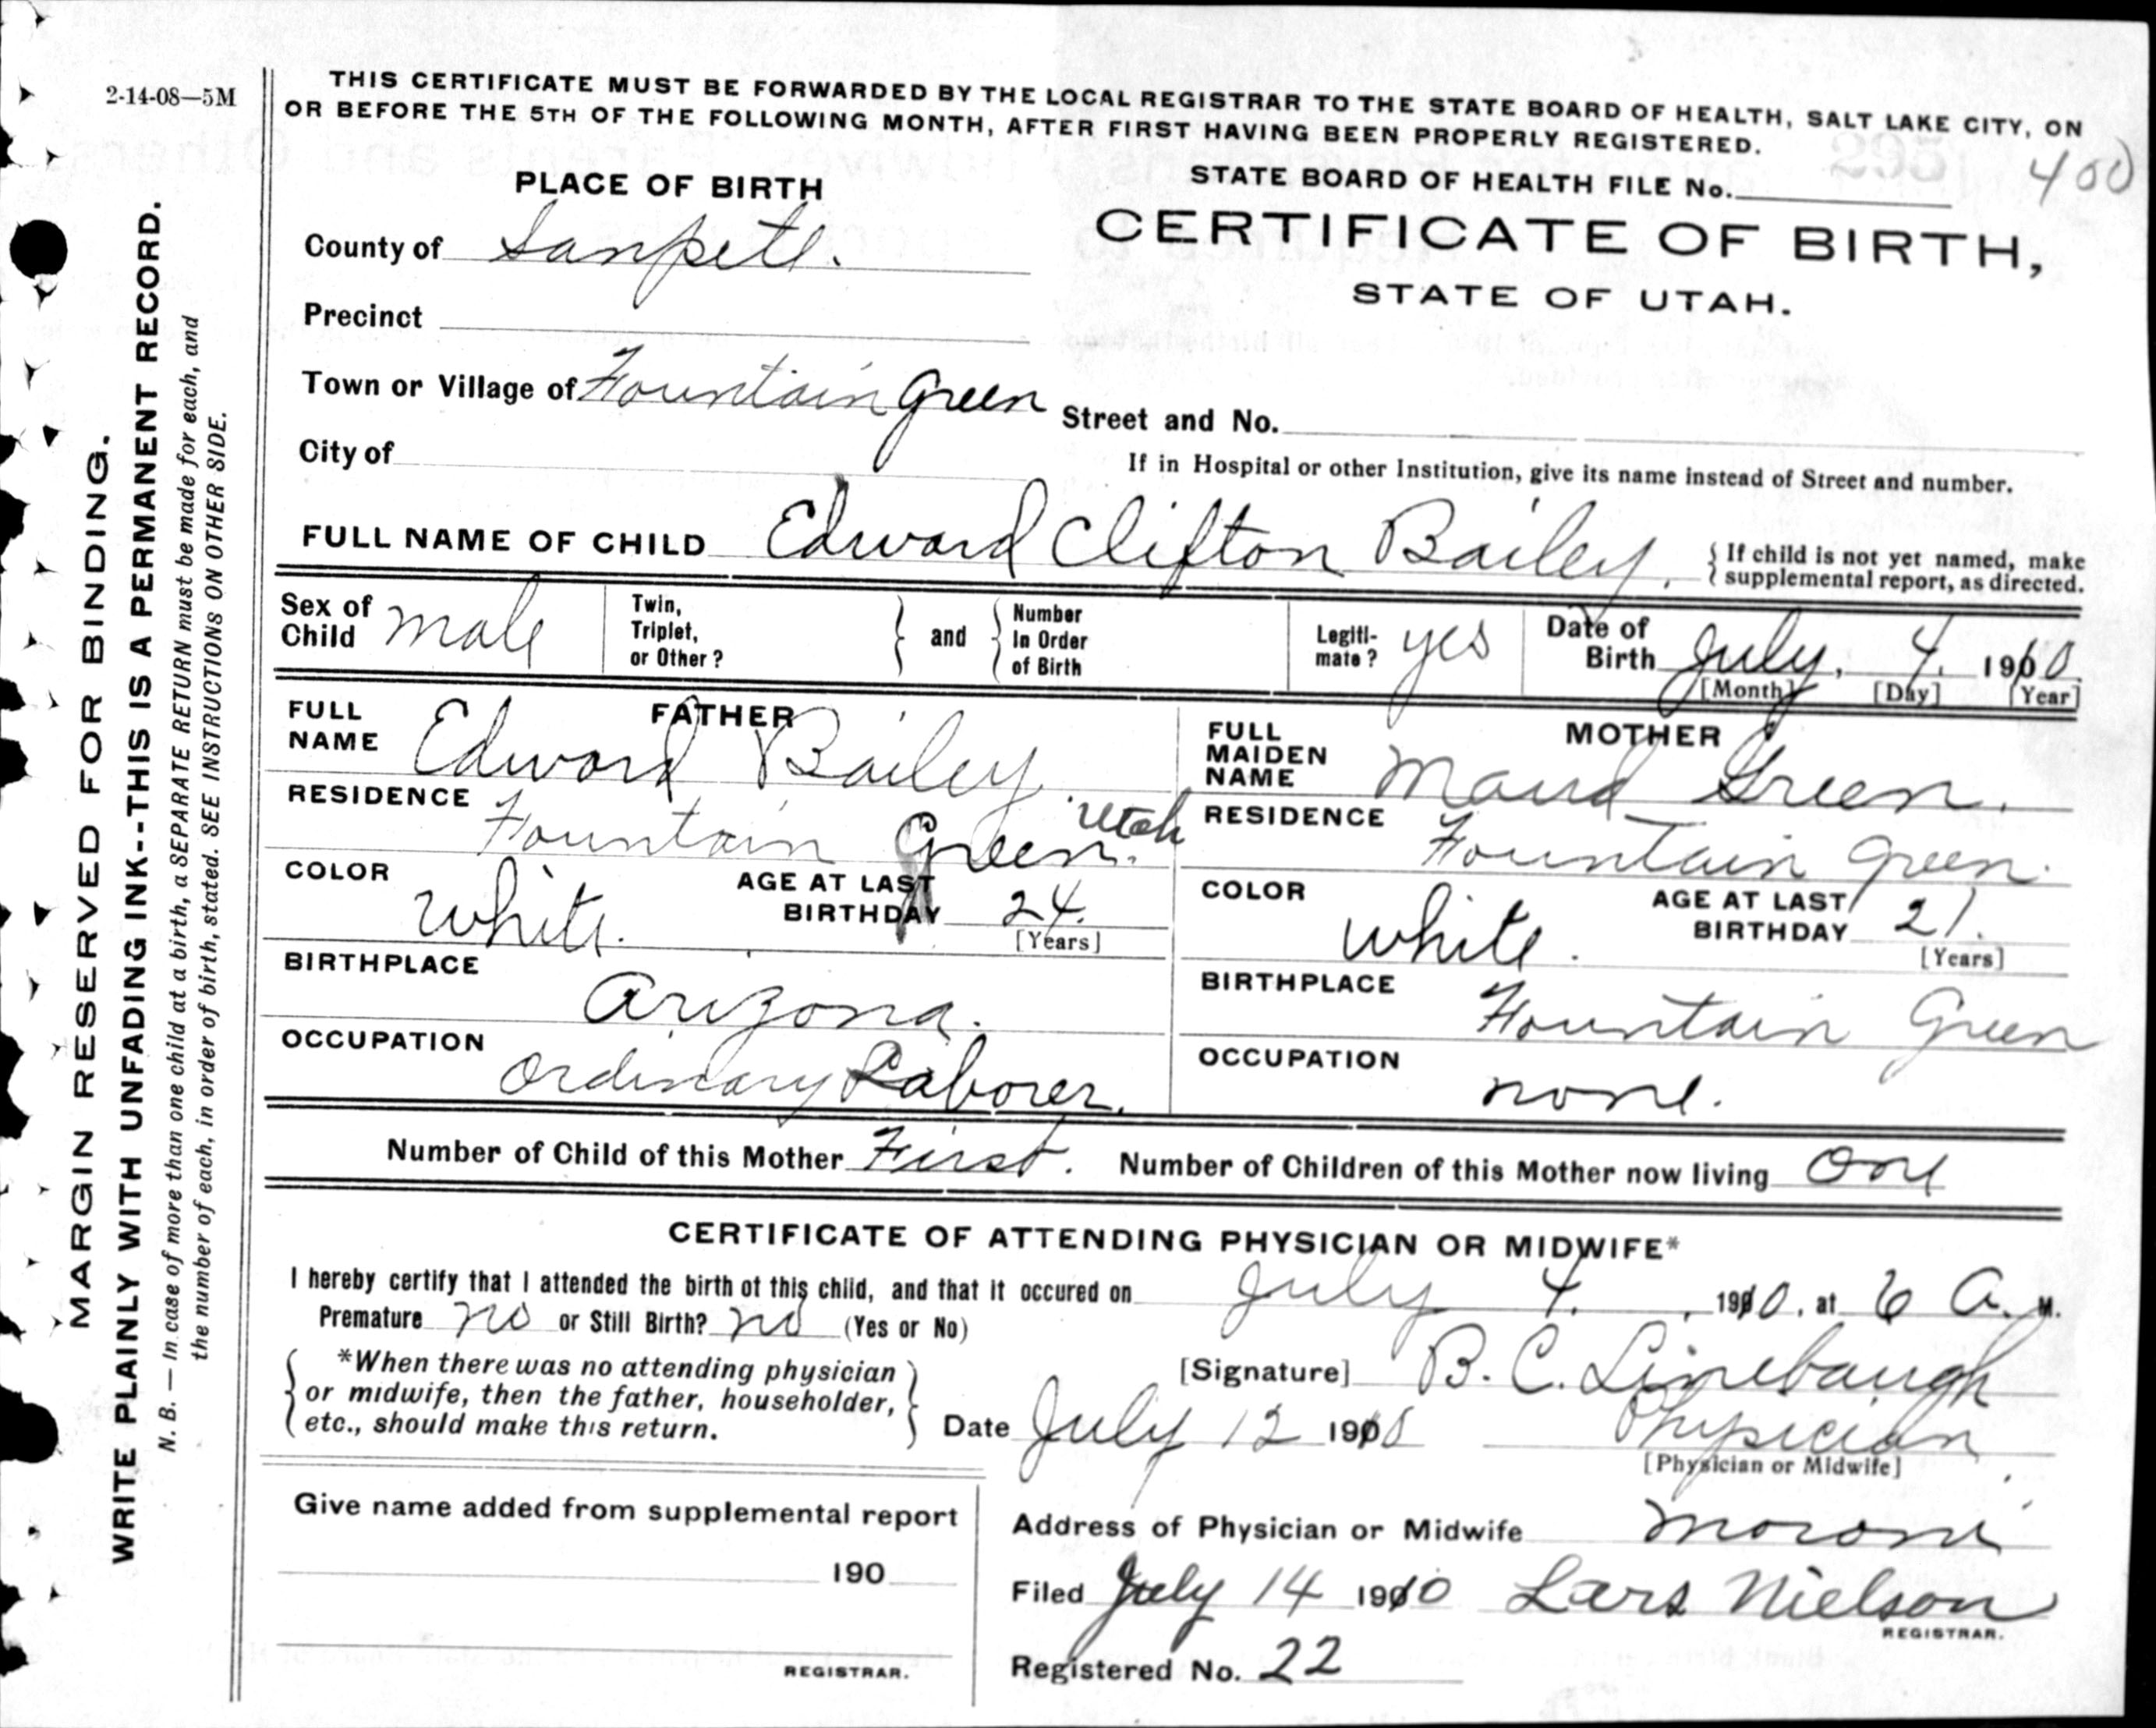 2-14-08—5M
THIS CERTIFICATE MUST BE FORWARDED BY THE LOCAL REGISTRAR TO THE STATE BOARD OF HEALTH, SALT LAKE CITY, ON
OR BEFORE THE 5TH OF THE FOLLOWING MONTH, AFTER FIRST HAVING BEEN PROPERLY REGISTERED.
STATE BOARD OF HEALTH FILE No. 400
CERTIFICATE OF BIRTH,
STATE OF UTAH.
PLACE OF BIRTH
County of Sanpete.
Precinct
Town or Village of Fountain Green
Street and No.
City of
If in Hospital or other Institution, give its name instead of Street and number.
FULL NAME OF CHILD Edward Clifton Bailey.
{ If child is not yet named, make
supplemental report, as directed.
Sex of Child male
Twin, Triplet, or Other? } and { Number In Order of Birth
Legiti-mate? yes
Date of Birth July. 4. 1910
[Month] [Day] [Year]
FATHER
FULL NAME Edward Bailey
RESIDENCE Fountain Green. Utah
COLOR white.
AGE AT LAST BIRTHDAY 24.
[Years]
BIRTHPLACE Arizona.
OCCUPATION Ordinary Laborer.
MOTHER
FULL MAIDEN NAME Maud Green.
RESIDENCE Fountain Green.
COLOR white.
AGE AT LAST BIRTHDAY 21.
[Years]
BIRTHPLACE Fountain Green
OCCUPATION none.
Number of Child of this Mother First. Number of Children of this Mother now living One
CERTIFICATE OF ATTENDING PHYSICIAN OR MIDWIFE*
I hereby certify that I attended the birth of this child, and that it occured on July 4. , 1910, at 6 A. M.
Premature no or Still Birth? no (Yes or No)
*When there was no attending physician
or midwife, then the father, householder,
etc., should make this return.
[Signature] B. C. Linebaugh
Date July 12 1910 Physician
[Physician or Midwife]
Give name added from supplemental report
190
REGISTRAR.
Address of Physician or Midwife Moroni
Filed July 14 1910 Lars Nielson
REGISTRAR.
Registered No. 22
MARGIN RESERVED FOR BINDING.
WRITE PLAINLY WITH UNFADING INK--THIS IS A PERMANENT RECORD.
N. B. — In case of more than one child at a birth, a SEPARATE RETURN must be made for each, and
the number of each, in order of birth, stated. SEE INSTRUCTIONS ON OTHER SIDE.